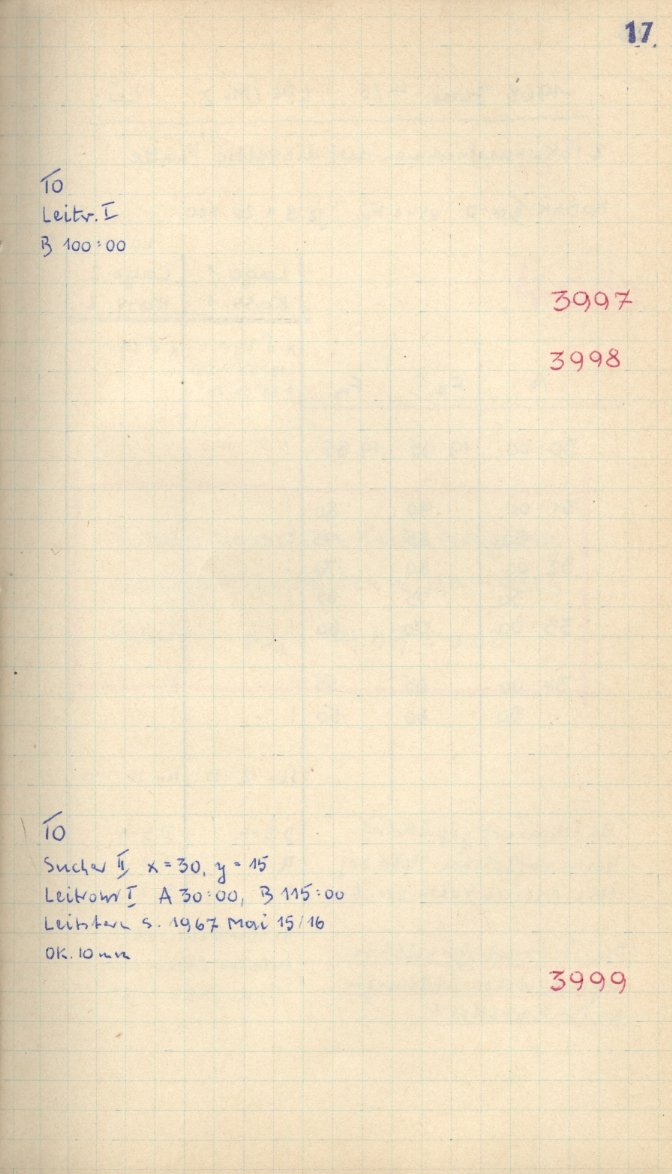 17
TO
Leitr. I
B 100:00
3997
3998
TO
Sucher II, x = 30, y = 15
Leitrohr I A 30:00, B 115:00
Leitstern s. 1967 Mai 15/16
OK. 10 mm
3999